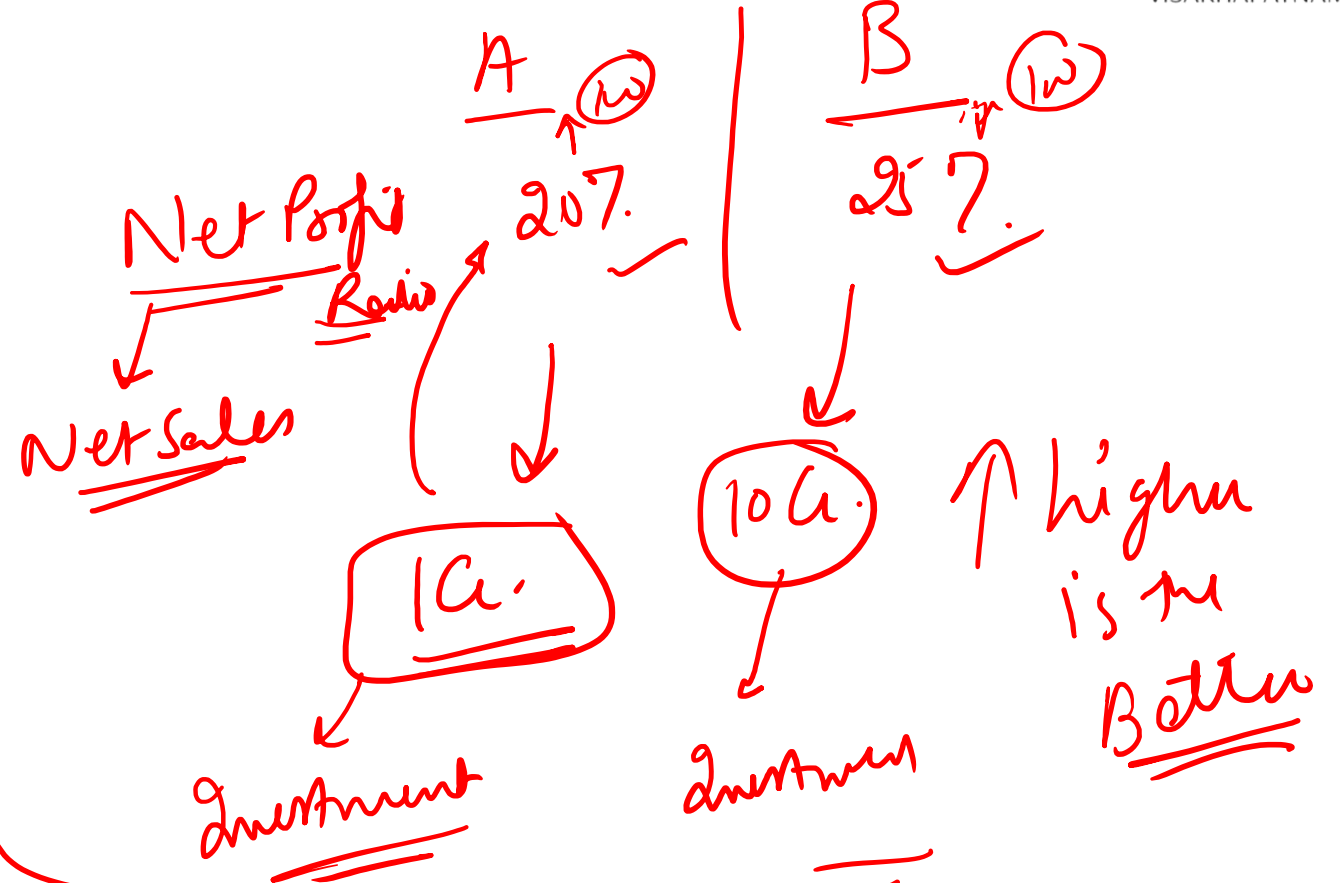 A 100
B 100
Net Profit
Ratio
20%.
25%.
Net Sales
1 Cr.
10 Cr.
higher
is the
Better
Investment
Investmen